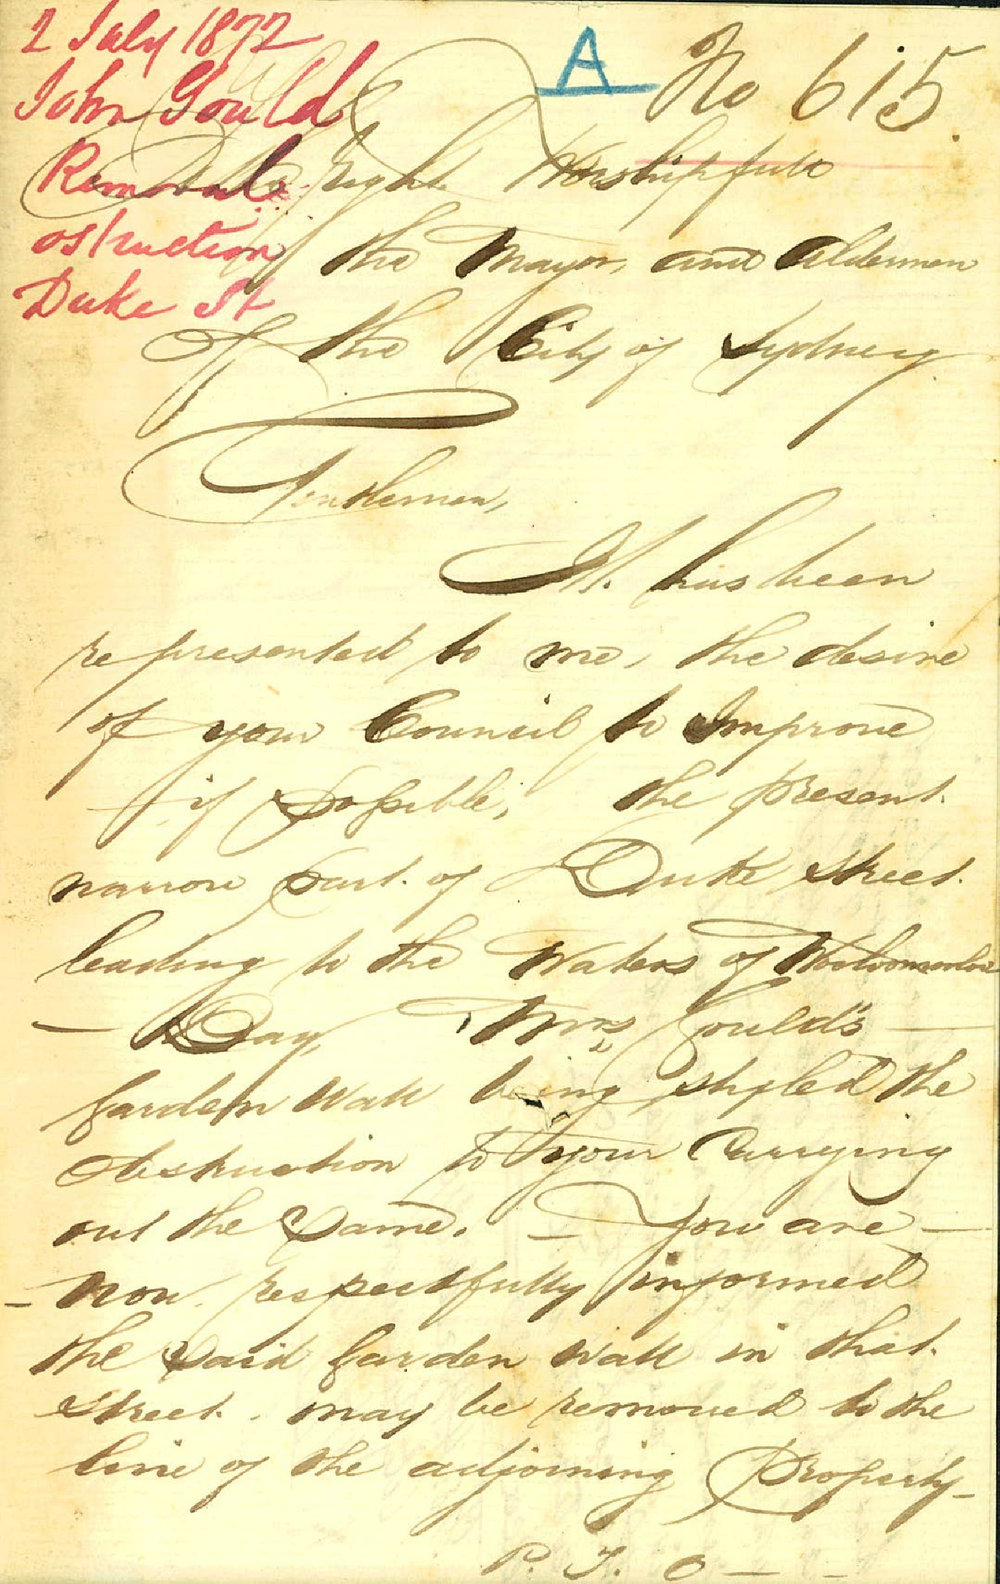 2 July 1872
John Gould
Removal
ostruction
Duke St
A
No 615.
To the Right Worshipfull
the Mayor, and Aldermen
Of the City of Sydney
Gentlemen,
It. has been
represented to me, the desire
of your Council to Improve
if Possible, the present.
narrow part. of Duke Street.
leading to the Waters of Wooloomooloo
- Bay, Mrs Gould's -
Garden Wall being styled the
Obstruction to your Carrying
out the Same. - You are -
- now respectfully informed
the Said Garden Wall in that.
Street. may be removed to the
line of the adjoining Property -
P. T. O - -